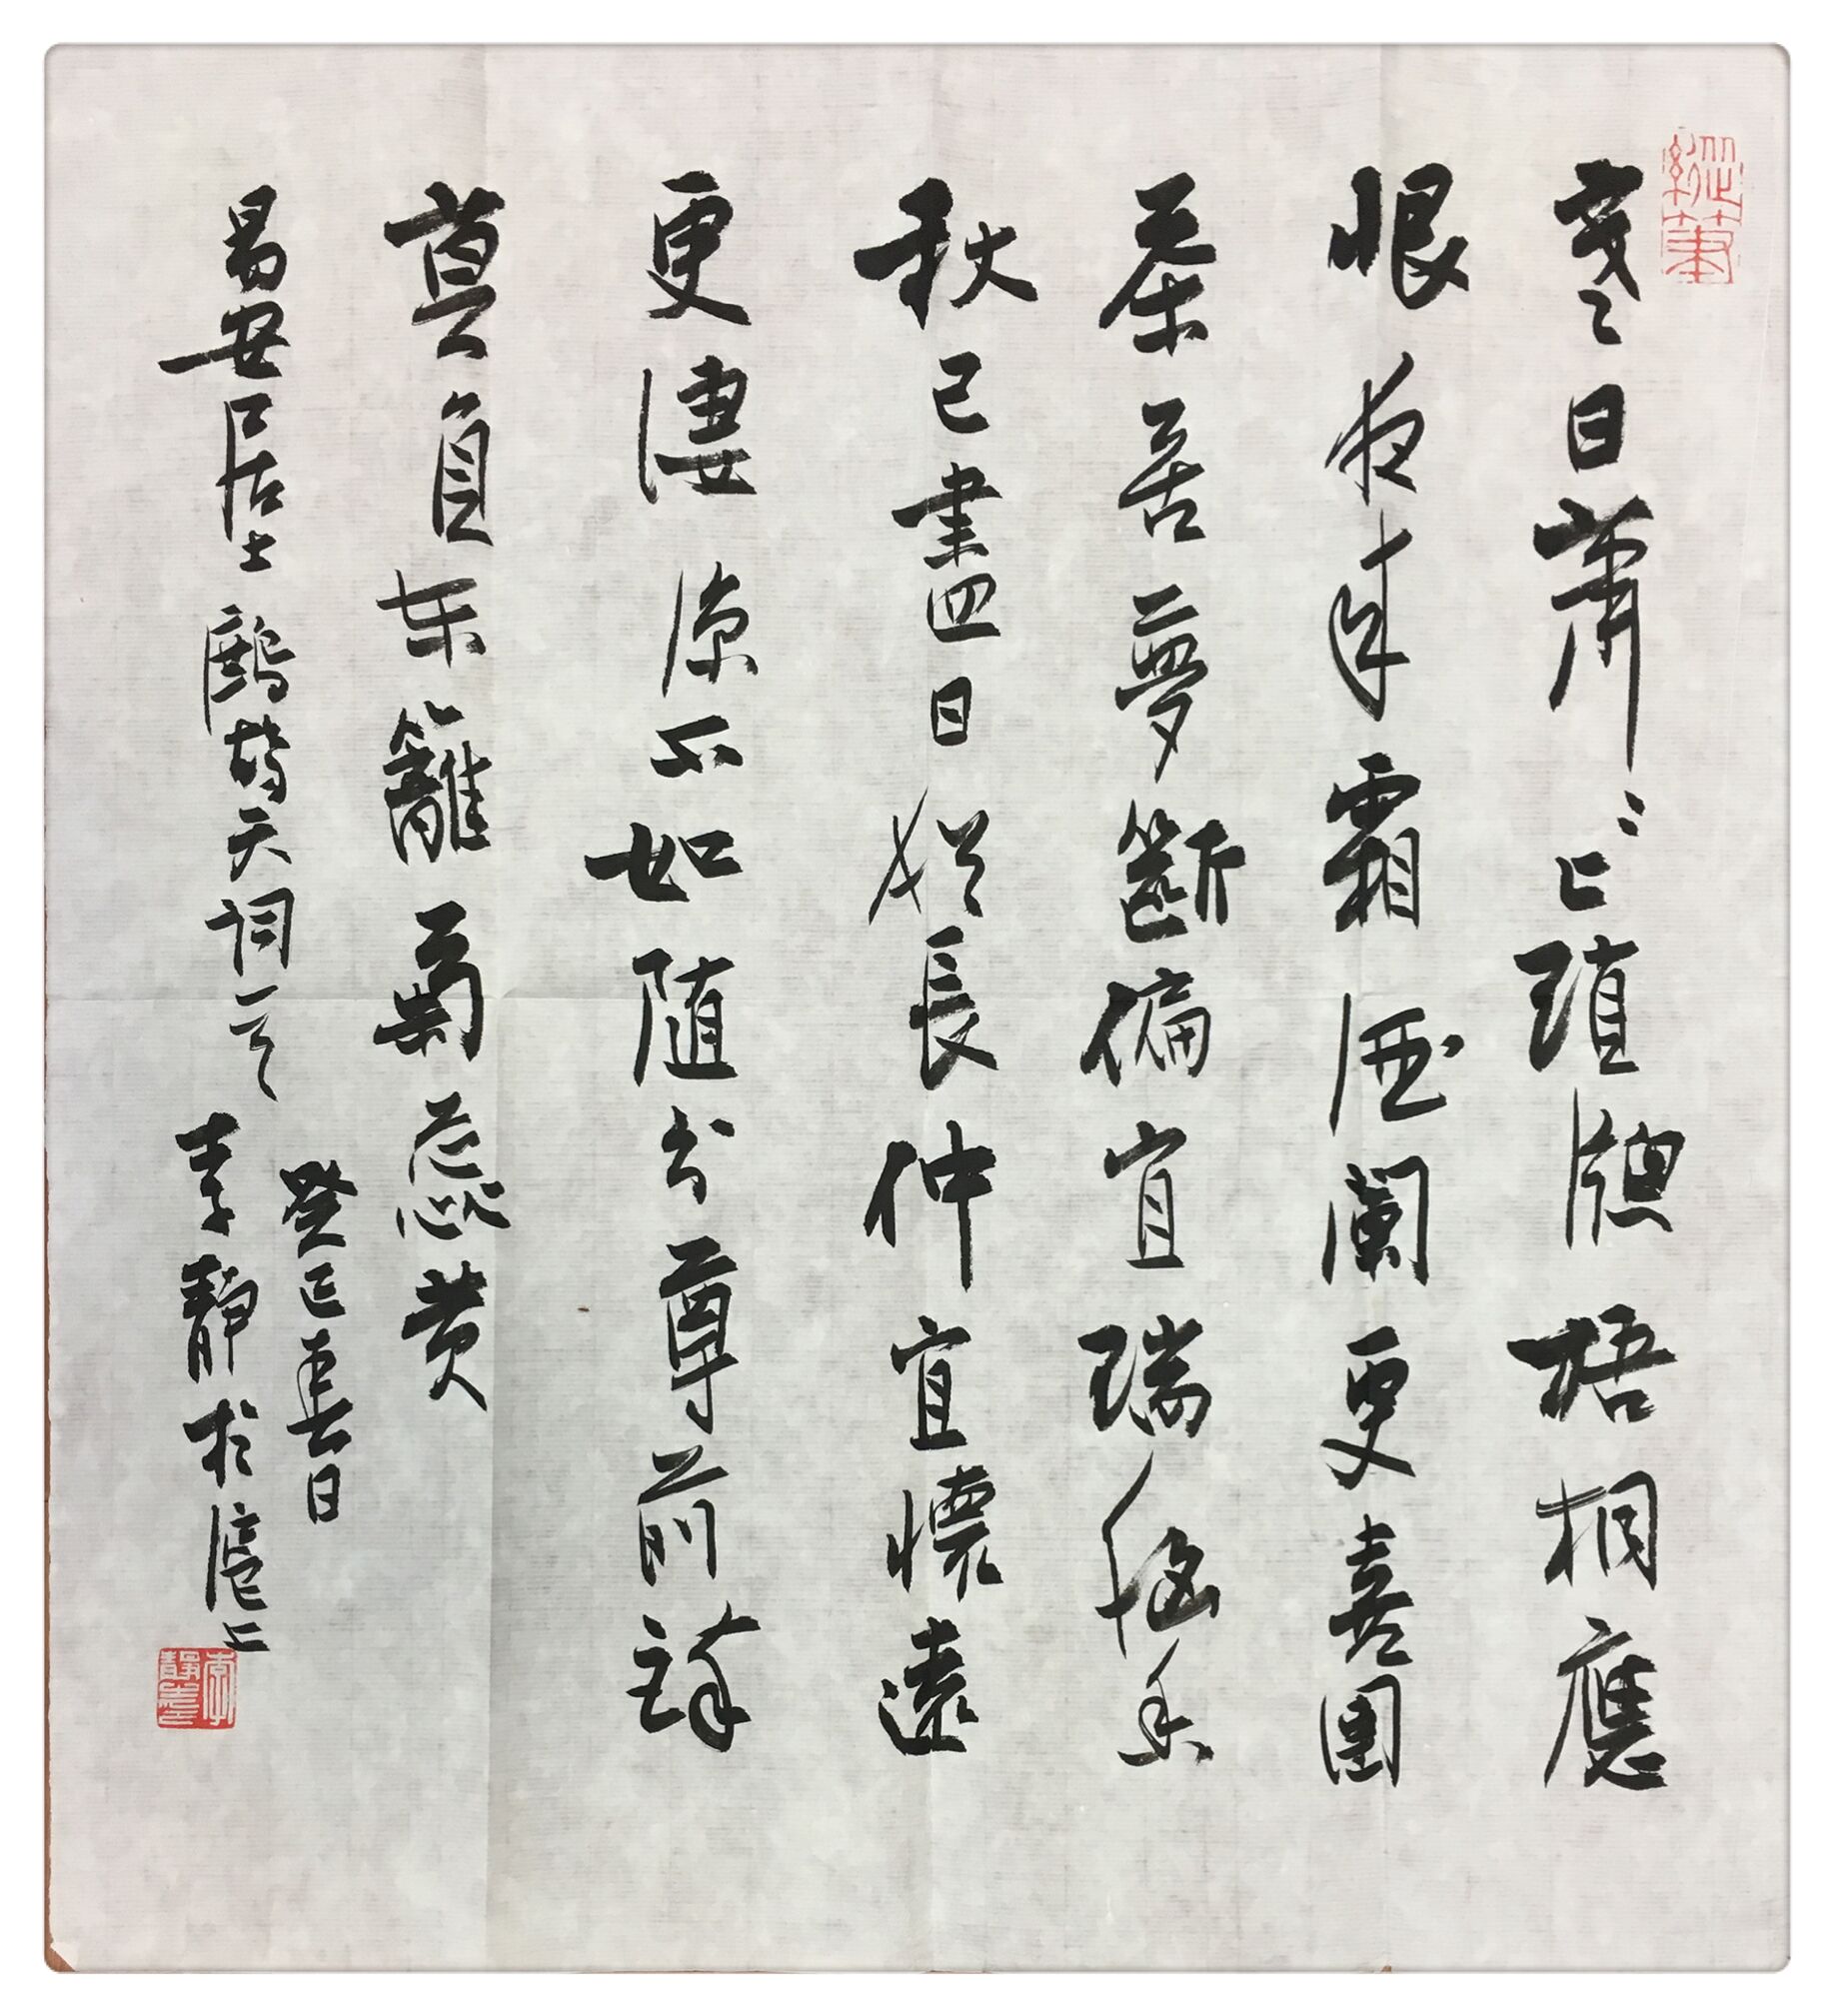 縱筆
寒日蕭〻上瑣牕梧桐應
恨夜來霜酒闌更喜團
茶苦夢斷偏宜瑞腦香
秋已盡日猶長仲宜懷遠
更淒涼不如随分尊前醉
莫負東籬菊蕊黄
易安居士鷓鴣天詞一首
癸巳春日
李靜於滬上